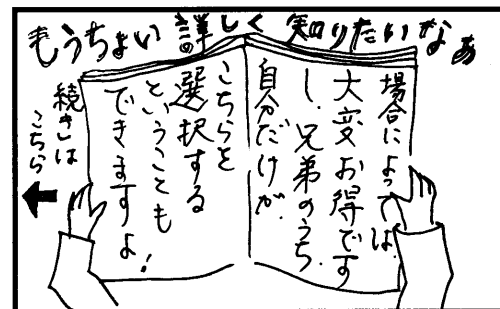 もうちょい詳しく知りたいなぁ
場合によっては、
大変お得です
し、兄弟のうち、
自分だけが、
こちらを
選択する
ということも
できますよ!
続きは
こちら